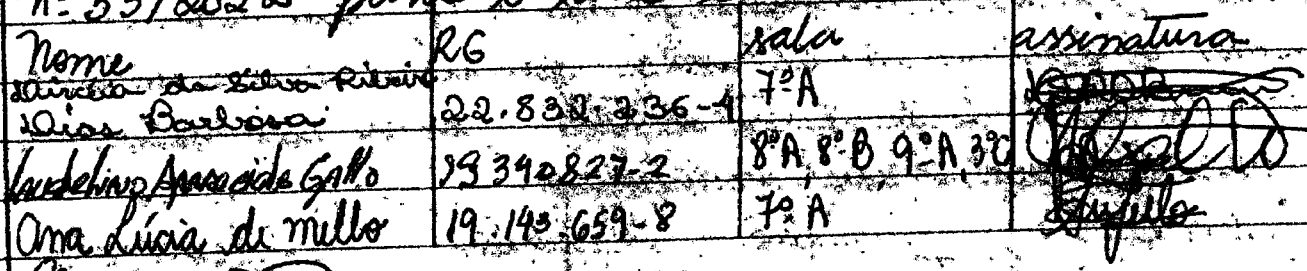 nº 33/2022 para o
Nome RG sala assinatura
Dircéia da Silva Ribeiro
Dias Barbosa 22.832.236-4 7ºA
Laudelino Aparecido Gallo 19340827-2 8ºA, 8ºB, 9ºA, 3ºC
Ana Lúcia de Mello 19.143.659-8 7ºA